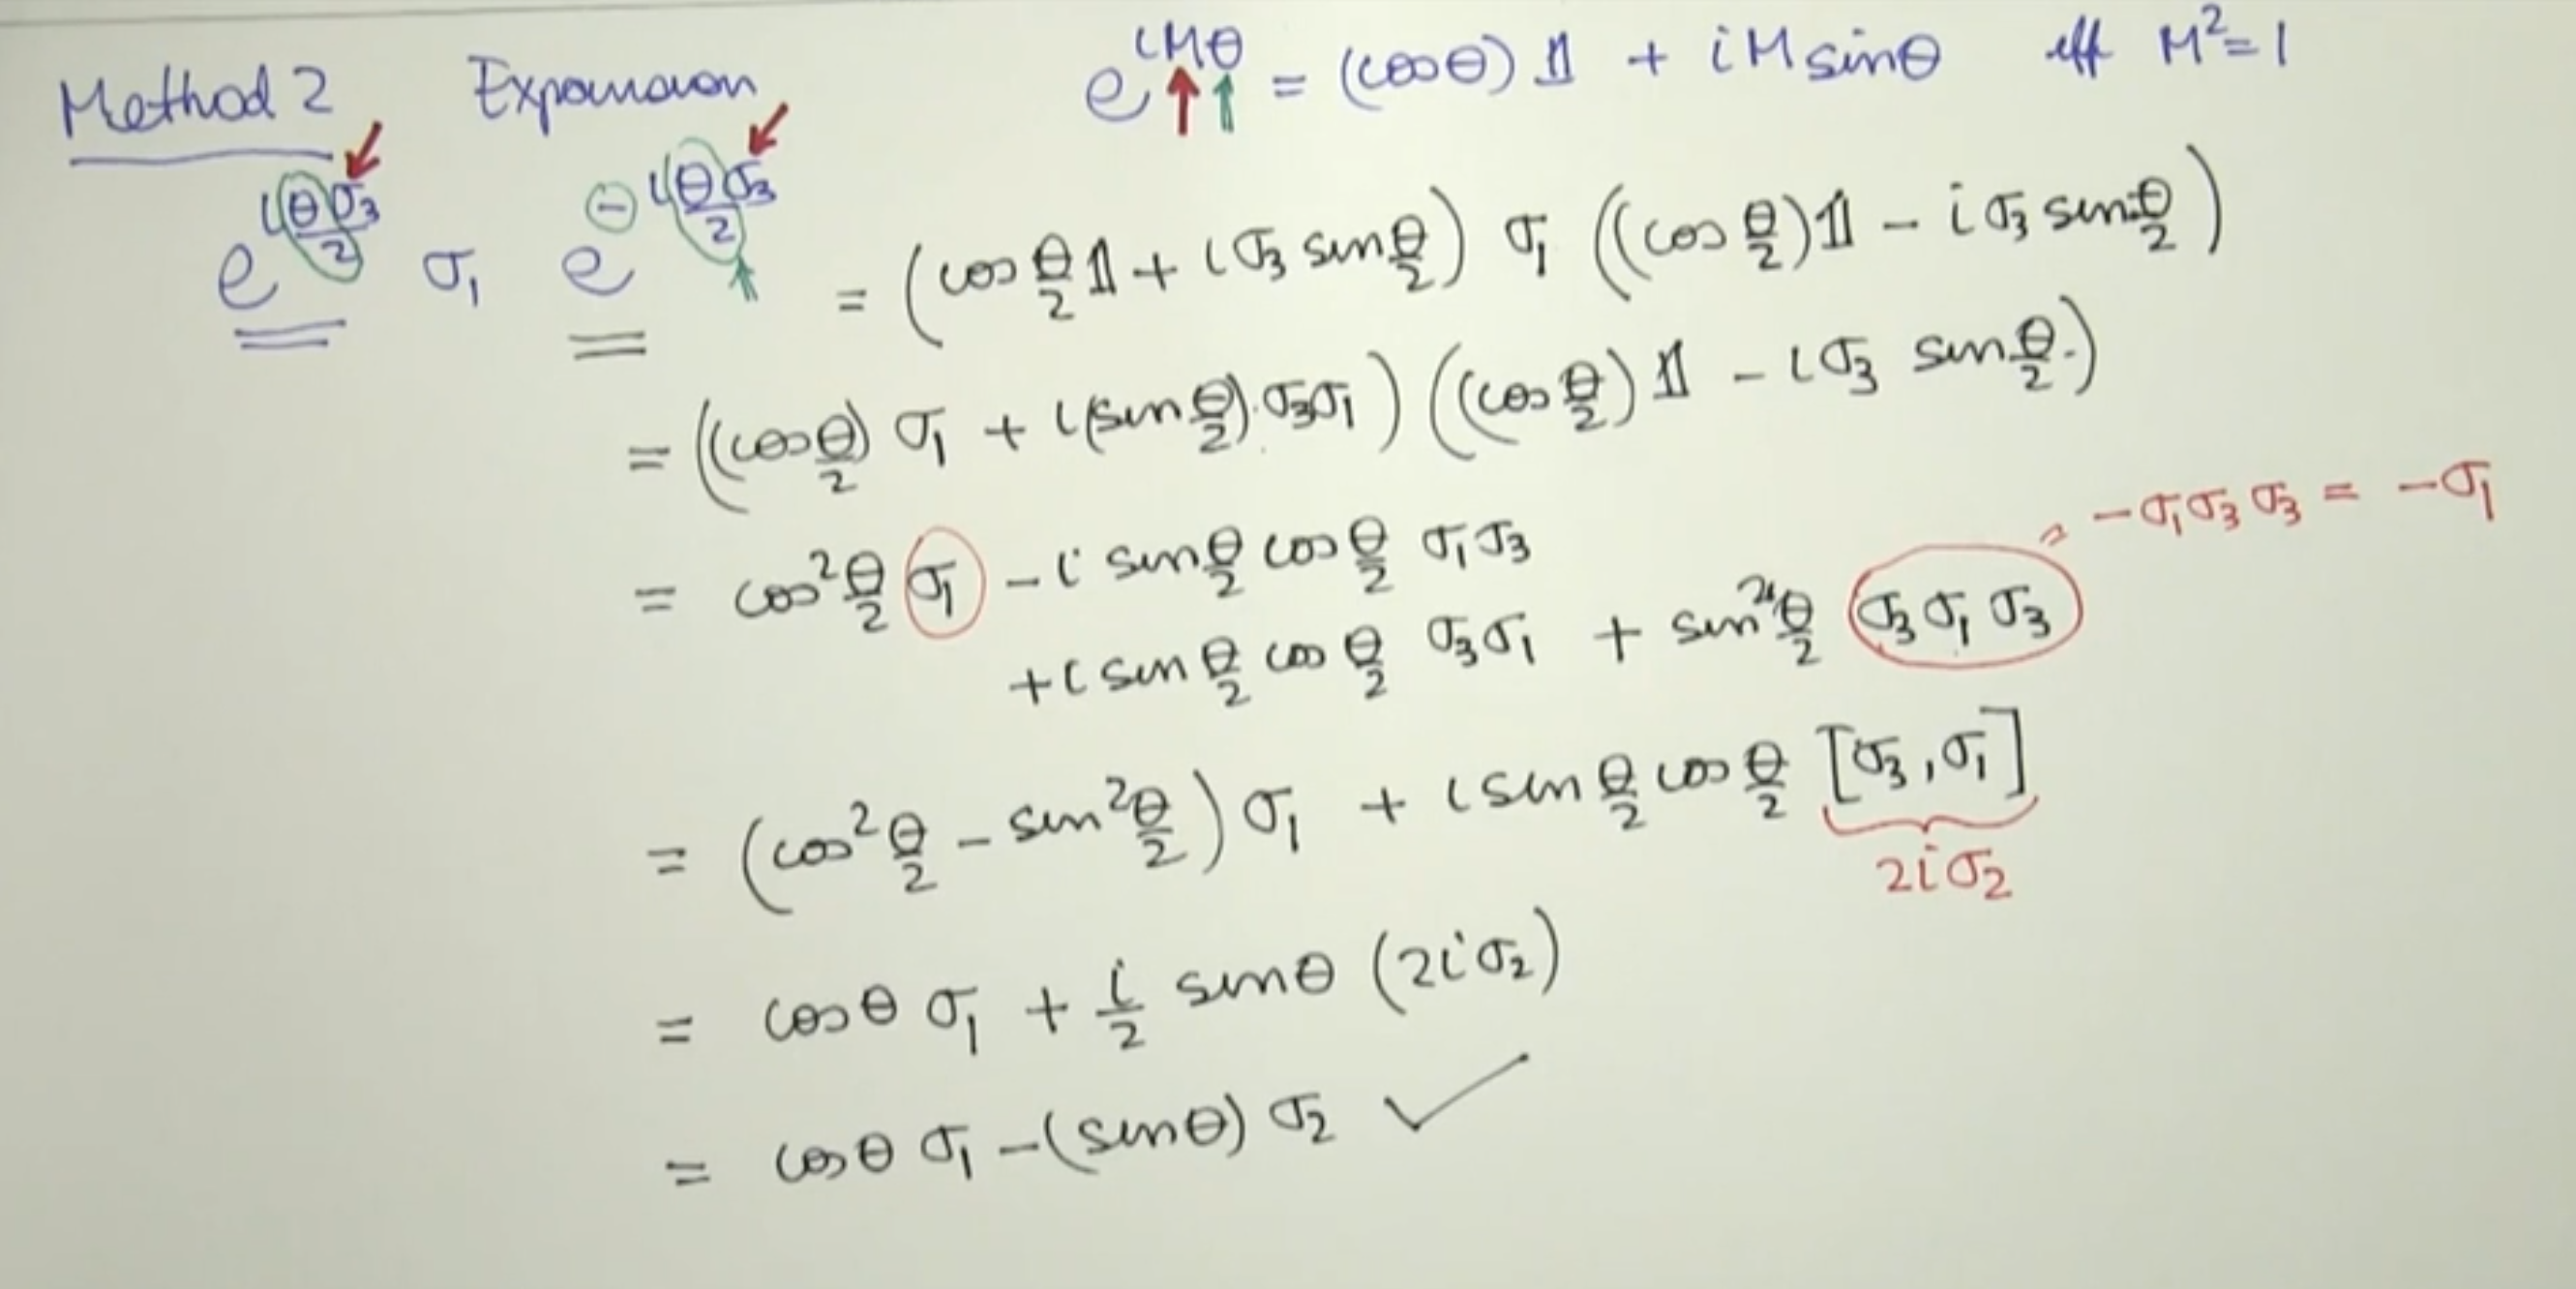 Method 2 Expansion e^{iMθ} = (cosθ) 𝟙 + iM sinθ iff M² = 1
e^{iθ/2 σ₃} σ₁ e^{-iθ/2 σ₃} = (cos θ/2 𝟙 + iσ₃ sin θ/2) σ₁ ((cos θ/2) 𝟙 - iσ₃ sin θ/2)
= ((cos θ/2) σ₁ + i(sin θ/2).σ₃σ₁) ((cos θ/2) 𝟙 - iσ₃ sin θ/2.)
= -σ₁σ₃σ₃ = -σ₁
= cos² θ/2 σ₁ - i sin θ/2 cos θ/2 σ₁σ₃
+ i sin θ/2 cos θ/2 σ₃σ₁ + sin² θ/2 σ₃σ₁σ₃
= (cos² θ/2 - sin² θ/2) σ₁ + i sin θ/2 cos θ/2 [σ₃, σ₁]
2iσ₂
= cosθ σ₁ + i/2 sinθ (2iσ₂)
= cosθ σ₁ - (sinθ) σ₂ ✓